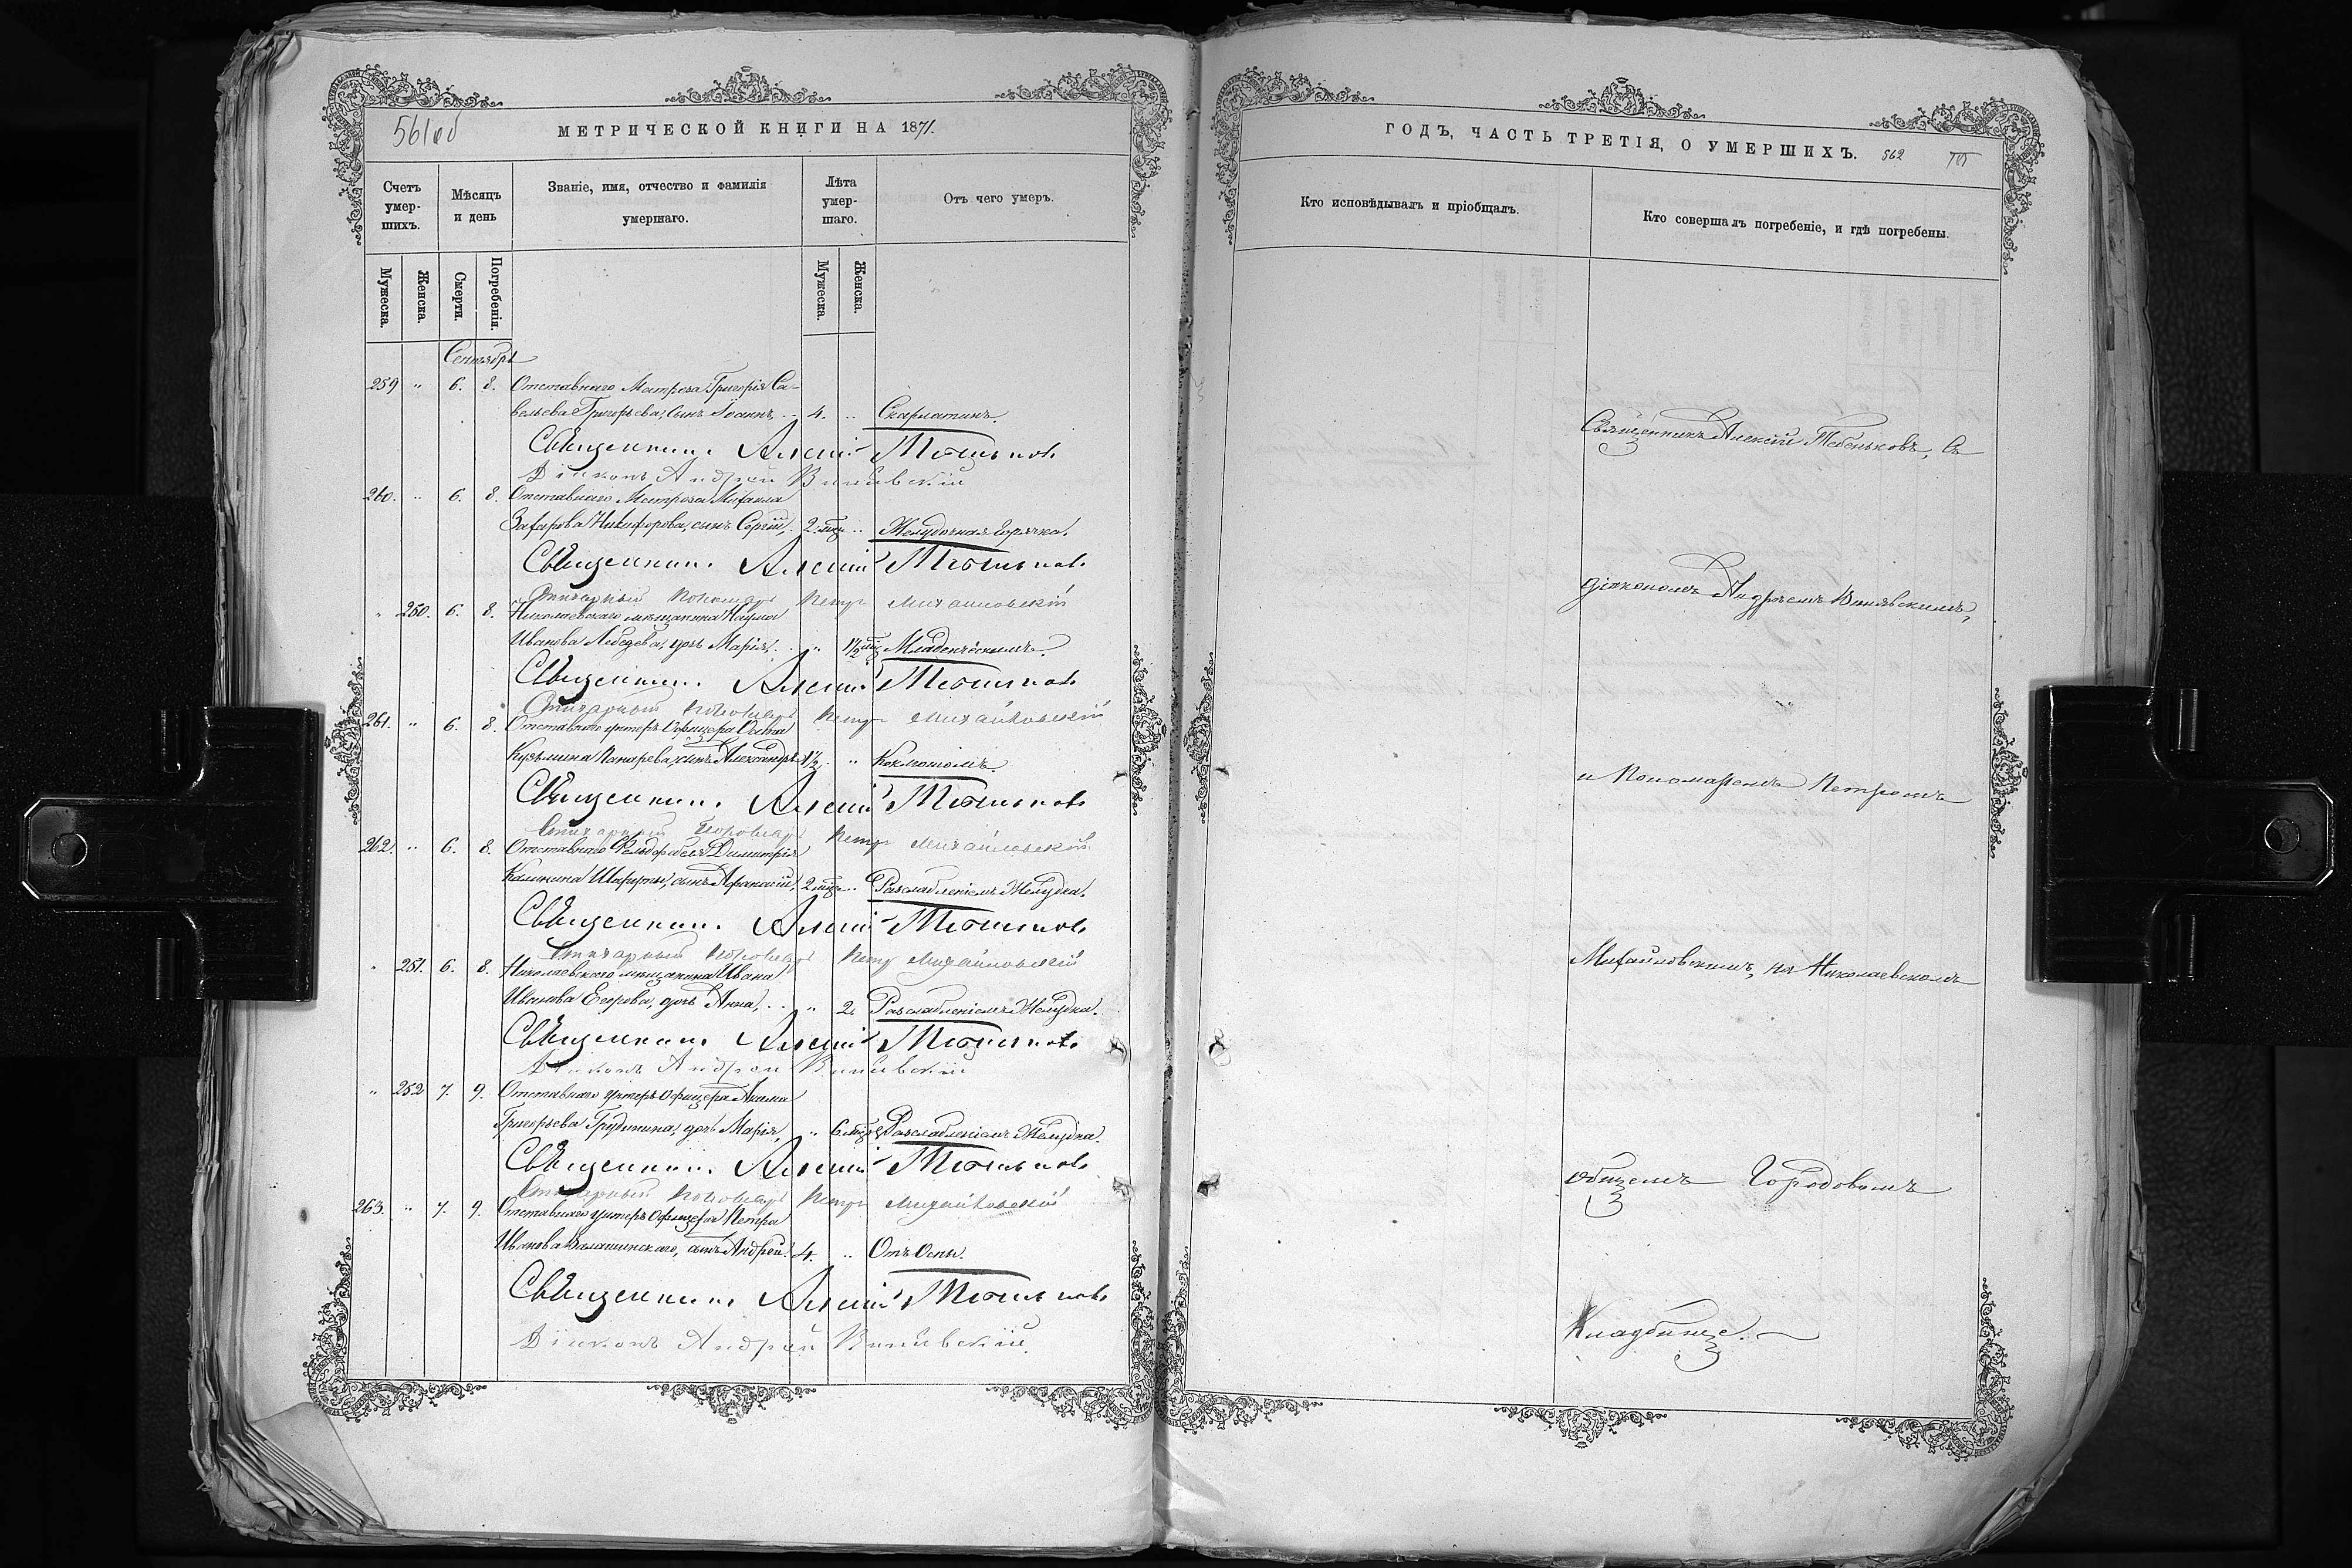 561об
МЕТРИЧЕСКОЙ КНИГИ НА 1871.
Счетъ умерших.
Мѣсяцъ и день
Званіе, имя, отчество и фамилія умершаго.
Лѣта умершаго.
Отъ чего умеръ.
Мужеска.
Женска.
Смерти.
Погребенія.
Мужеска.
Женска.
Сентябрь
259 " 6. 8. Отставнаго Матроса Григорія Са-
вельева Григорьева, сынъ Іоаннъ, 4. " Скарлатинъ.
Священникъ Алексій Тебеньковъ
Діаконъ Андрей Винявскій
260. " 6. 8. Отставнаго Матроса Михаила
Захарова Никифорова, сынъ Сергій, 2 мѣс. " Желудочная горячка.
Священникъ Алексій Тебеньковъ
Пономарь Петръ Михайловскій
" 250. 6. 8. Николаевскаго мѣщанина Наума
Иванова Лебедева, дочь Марія, " 1½ мѣс. Младенческимъ.
Священникъ Алексій Тебеньковъ
Пономарь Петръ Михайловскій
261. " 6. 8. Отставнаго унтеръ Офицера
Кузьмина сынъ Александръ 1½. " Коклюшомъ.
Священникъ Алексій Тебеньковъ
Пономарь Петръ Михайловскій
262. " 6. 8. Отставнаго Димитрія
Калинина сынъ Афанасій, 2 мѣс. " Разслабленіемъ Желудка.
Священникъ Алексій Тебеньковъ
Пономарь Петръ Михайловскій
" 251. 6. 8. Николаевскаго мѣщанина Ивана
Иванова Егорова, дочь Анна, " 2. Разслабленіемъ Желудка.
Священникъ Алексій Тебеньковъ
Діаконъ Андрей Винявскій
" 252 7. 9. Отставнаго унтеръ Офицера Акима
Григорьева Грудинина, дочь Марія, " 6 мѣс. Разслабленіемъ Желудка.
Священникъ Алексій Тебеньковъ
Пономарь Петръ Михайловскій
263. " 7. 9. Отставнаго унтеръ Офицера Петра
Иванова сынъ Андрей. 4. " Отъ Оспы.
Священникъ Алексій Тебеньковъ
Діаконъ Андрей Винявскій.
ГОДЪ, ЧАСТЬ ТРЕТІЯ, О УМЕРШИХЪ. 562
Кто исповѣдывалъ и пріобщалъ.
Кто совершалъ погребеніе, и гдѣ погребены.
Священникъ Алексій Тебеньковъ, съ
діакономъ Андреемъ Винявскимъ,
и Пономаремъ Петромъ
Михайловскимъ, на Николаевскомъ
общемъ Городовомъ
Кладбище.